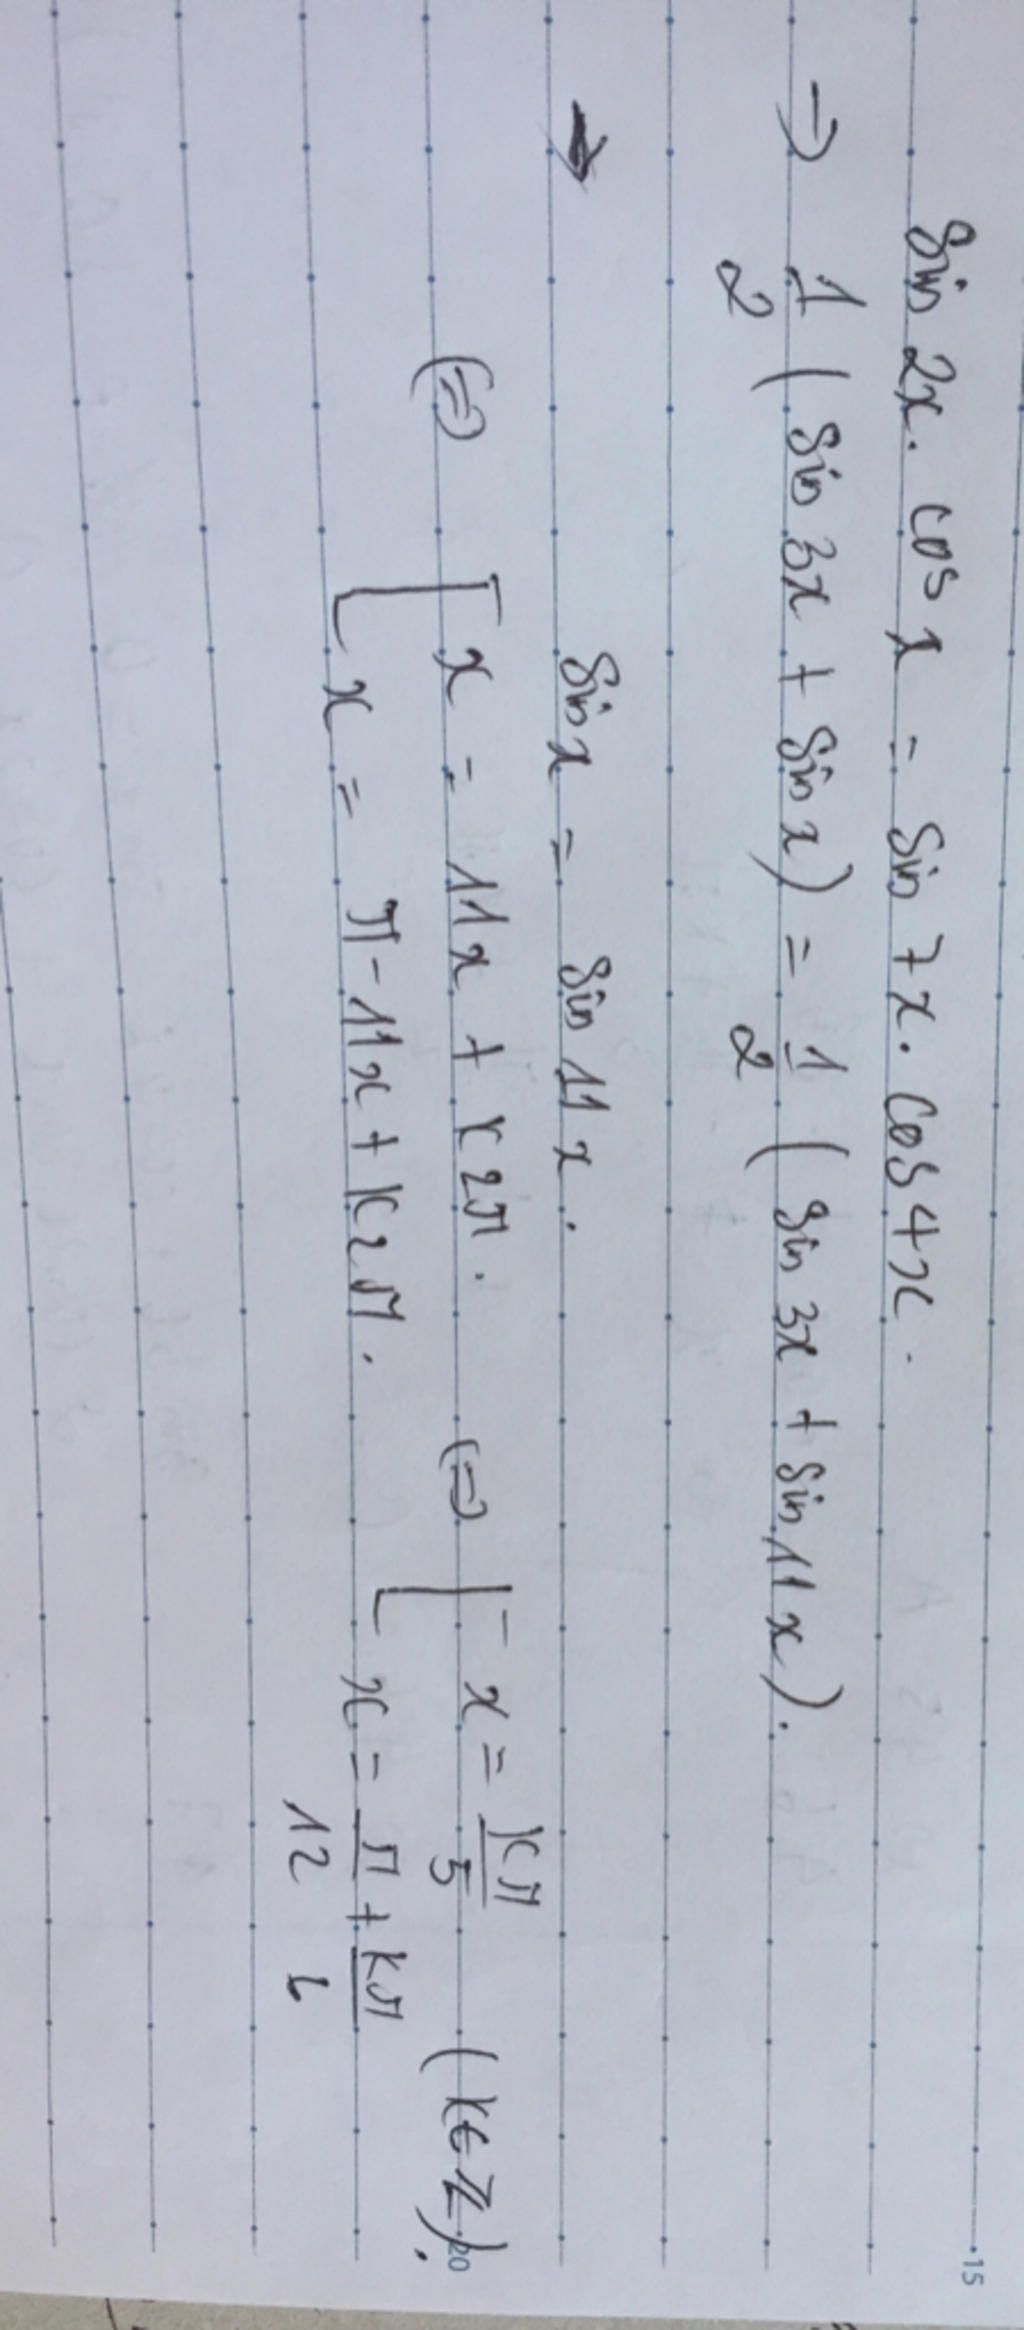 sin 2x. cos x = sin 7x. cos 4x.
=> 1/2 (sin 3x + sin x) = 1/2 (sin 3x + sin 11x).
→ sin x = sin 11x.
(=) [ x = 11x + k2π. (=) [ x = kπ/5 (k∈Z).
[ x = π - 11x + k2π. [ x = π/12 + kπ/6
15
20